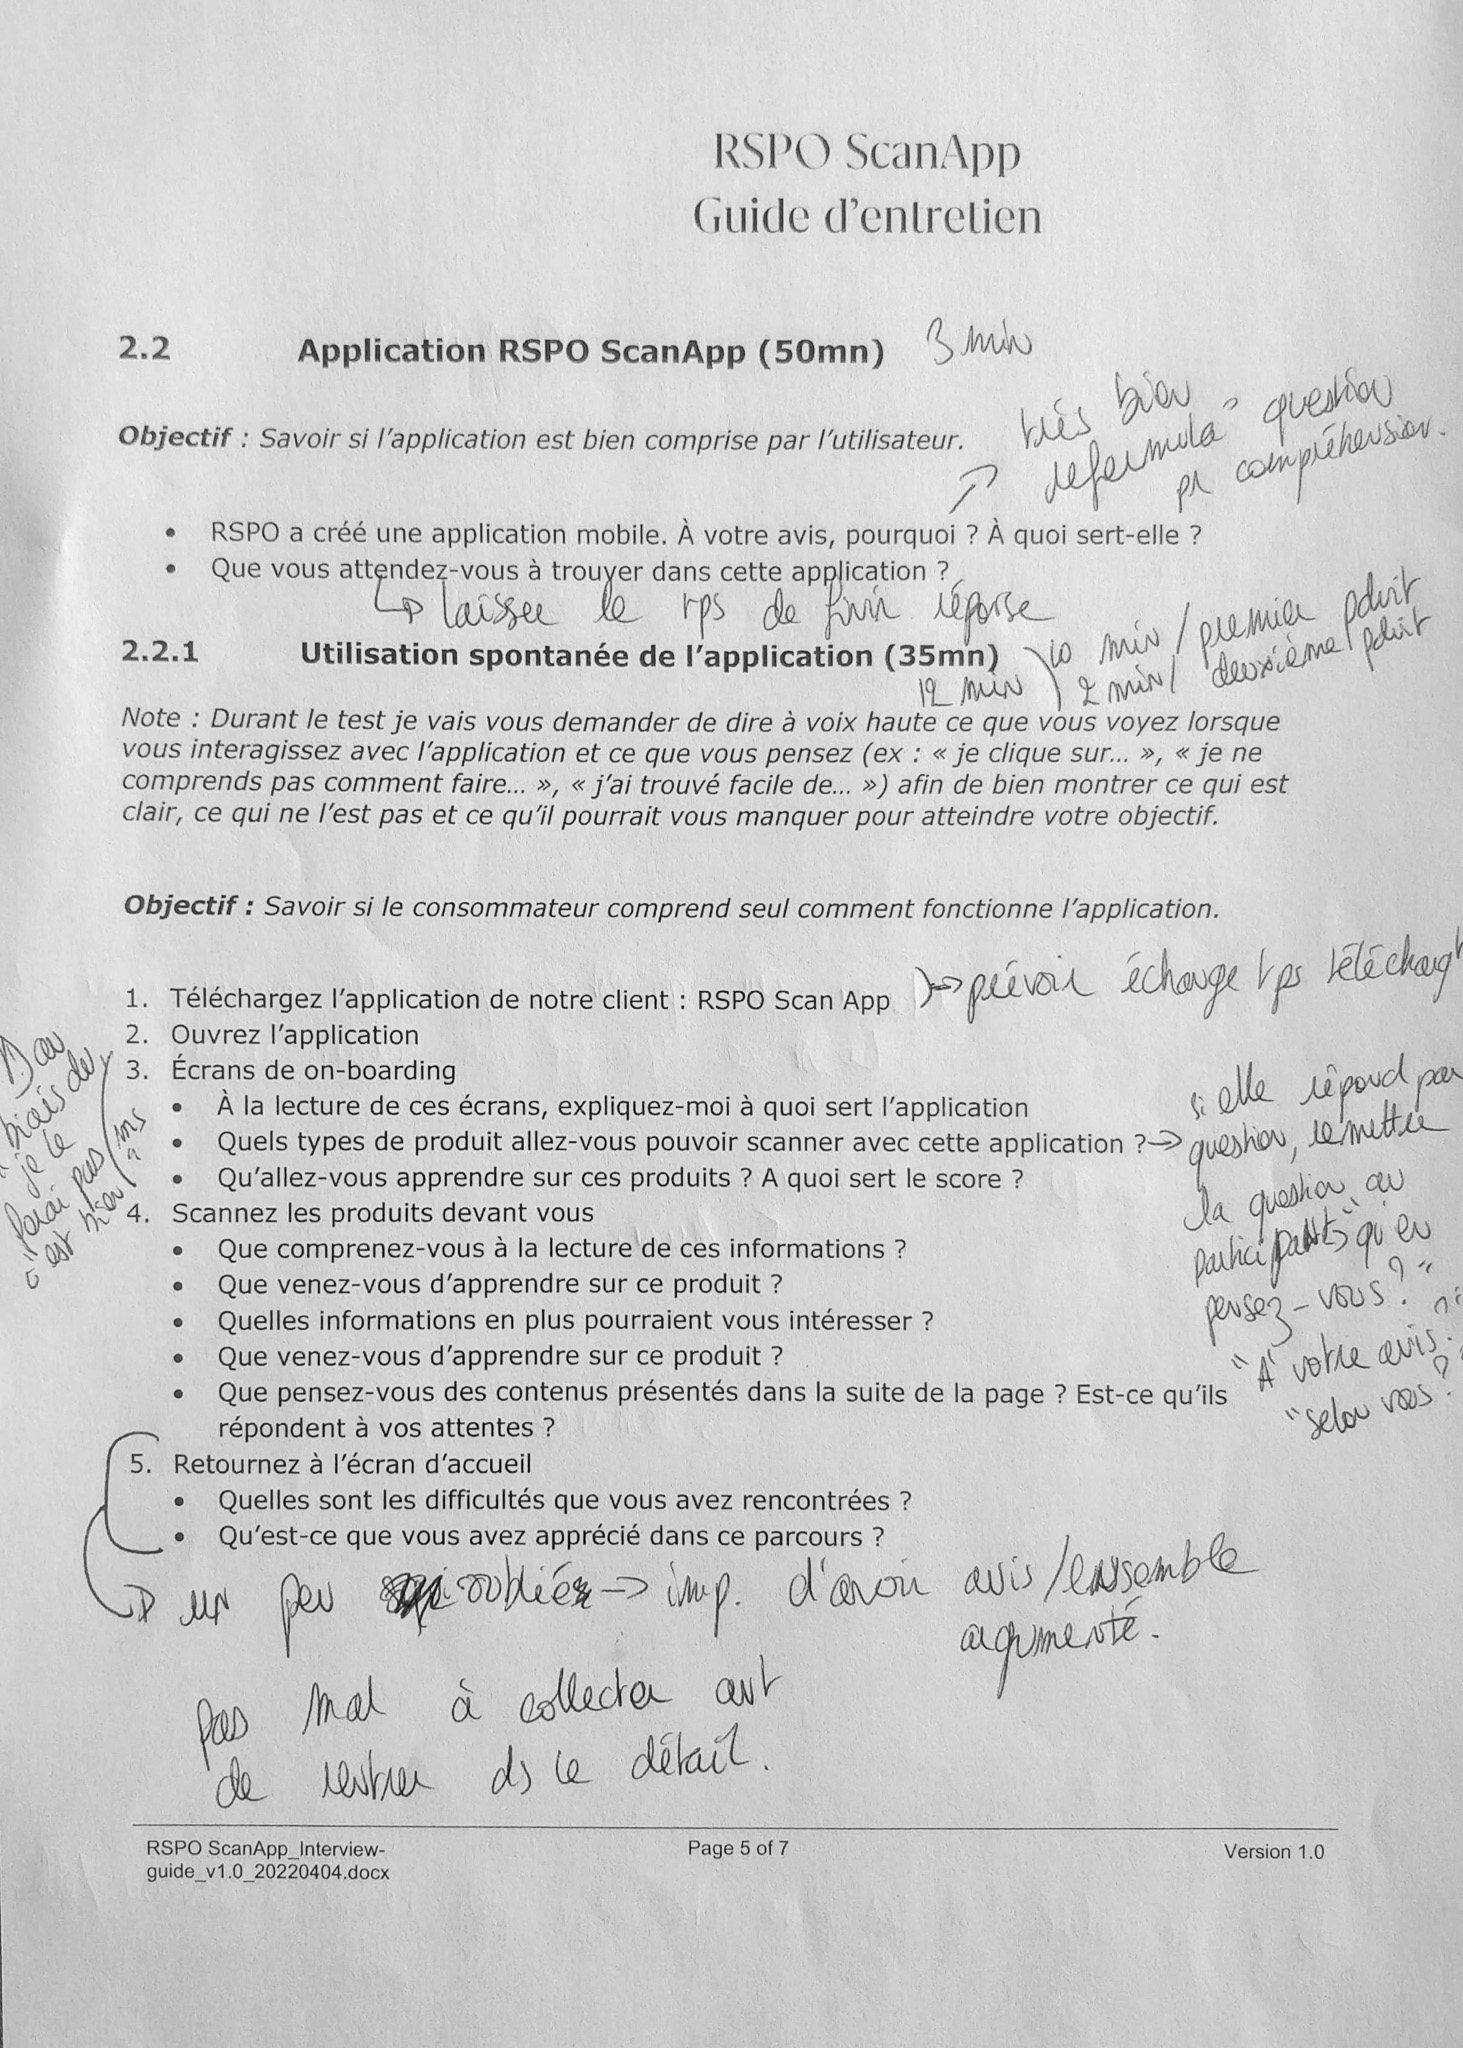 RSPO ScanApp
Guide d'entretien
2.2 Application RSPO ScanApp (50mn) 3 min
très bien
reformula° question
pr compréhension.
Objectif : Savoir si l'application est bien comprise par l'utilisateur.
• RSPO a créé une application mobile. À votre avis, pourquoi ? À quoi sert-elle ?
• Que vous attendez-vous à trouver dans cette application ?
laisser le tps de finir réponse
2.2.1 Utilisation spontanée de l'application (35mn)
12 min
10 min / premier pduit
2 min / deuxième pduit
Note : Durant le test je vais vous demander de dire à voix haute ce que vous voyez lorsque
vous interagissez avec l'application et ce que vous pensez (ex : « je clique sur... », « je ne
comprends pas comment faire... », « j'ai trouvé facile de... ») afin de bien montrer ce qui est
clair, ce qui ne l'est pas et ce qu'il pourrait vous manquer pour atteindre votre objectif.
Objectif : Savoir si le consommateur comprend seul comment fonctionne l'application.
1. Téléchargez l'application de notre client : RSPO Scan App → prévoir échange tps téléchargt
2. Ouvrez l'application
3. Écrans de on-boarding
• À la lecture de ces écrans, expliquez-moi à quoi sert l'application
• Quels types de produit allez-vous pouvoir scanner avec cette application ? →
• Qu'allez-vous apprendre sur ces produits ? A quoi sert le score ?
4. Scannez les produits devant vous
• Que comprenez-vous à la lecture de ces informations ?
• Que venez-vous d'apprendre sur ce produit ?
• Quelles informations en plus pourraient vous intéresser ?
• Que venez-vous d'apprendre sur ce produit ?
• Que pensez-vous des contenus présentés dans la suite de la page ? Est-ce qu'ils
répondent à vos attentes ?
5. Retournez à l'écran d'accueil
• Quelles sont les difficultés que vous avez rencontrées ?
• Qu'est-ce que vous avez apprécié dans ce parcours ?
si elle répond par
question, remettre
la question au
participants "qu'en
pensez-vous ?"
"A votre avis
"selon vous ?"
au
biais de
je le
ferai pas
est bien
un peu oubliée → imp. d'avoir avis / ensemble
argumenté.
pas mal à collecter avt
de rentrer ds le détail.
RSPO ScanApp_Interview-
guide_v1.0_20220404.docx
Page 5 of 7
Version 1.0